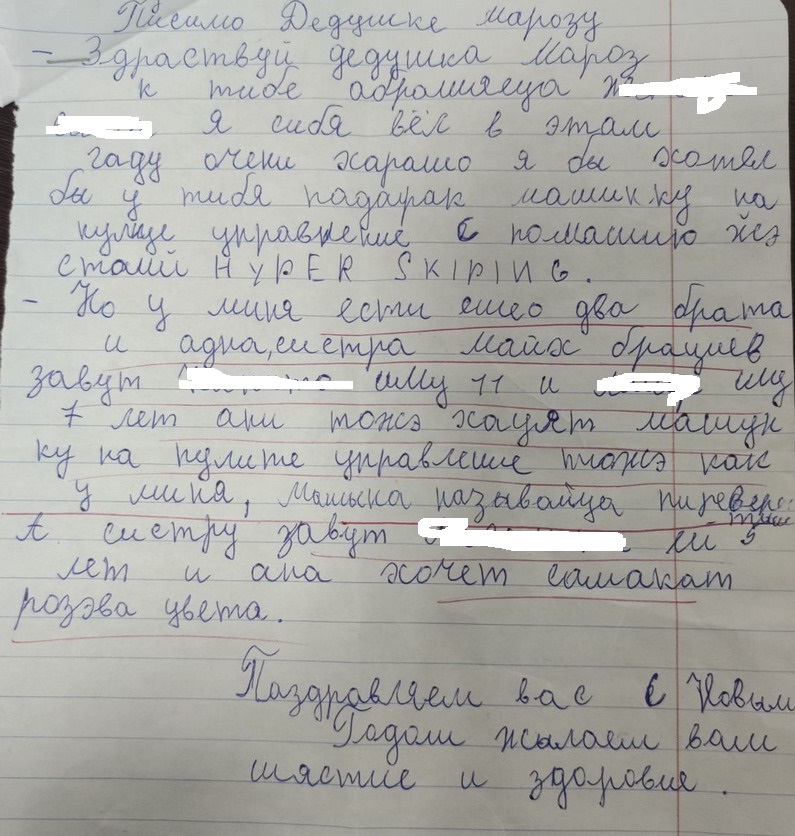 Писмо Дедушке марозу
- Здраствуй дедушка Мароз
к тибе абрамияеца
. Я сибя вёл в этам
гаду очени харашо я бы хотял
бы у тибя падарак машинку на
кулще управкение с помащию йсэ
стами HYPER SKIPING.
- Но у миня ести ешео два брата
и адна, систра маих брациев
завут иму 11 и иму
7 лет ани тожэ хацят машун
ку на пулите управление тожэ как
у миня, Машына называйца пиреверо
тыш
А систру завут ей 5
лет и ана хочет самакат
розэва цвета.
Паздравляем вас с Новым
Годам жылаем вам
шястие и здоровие.